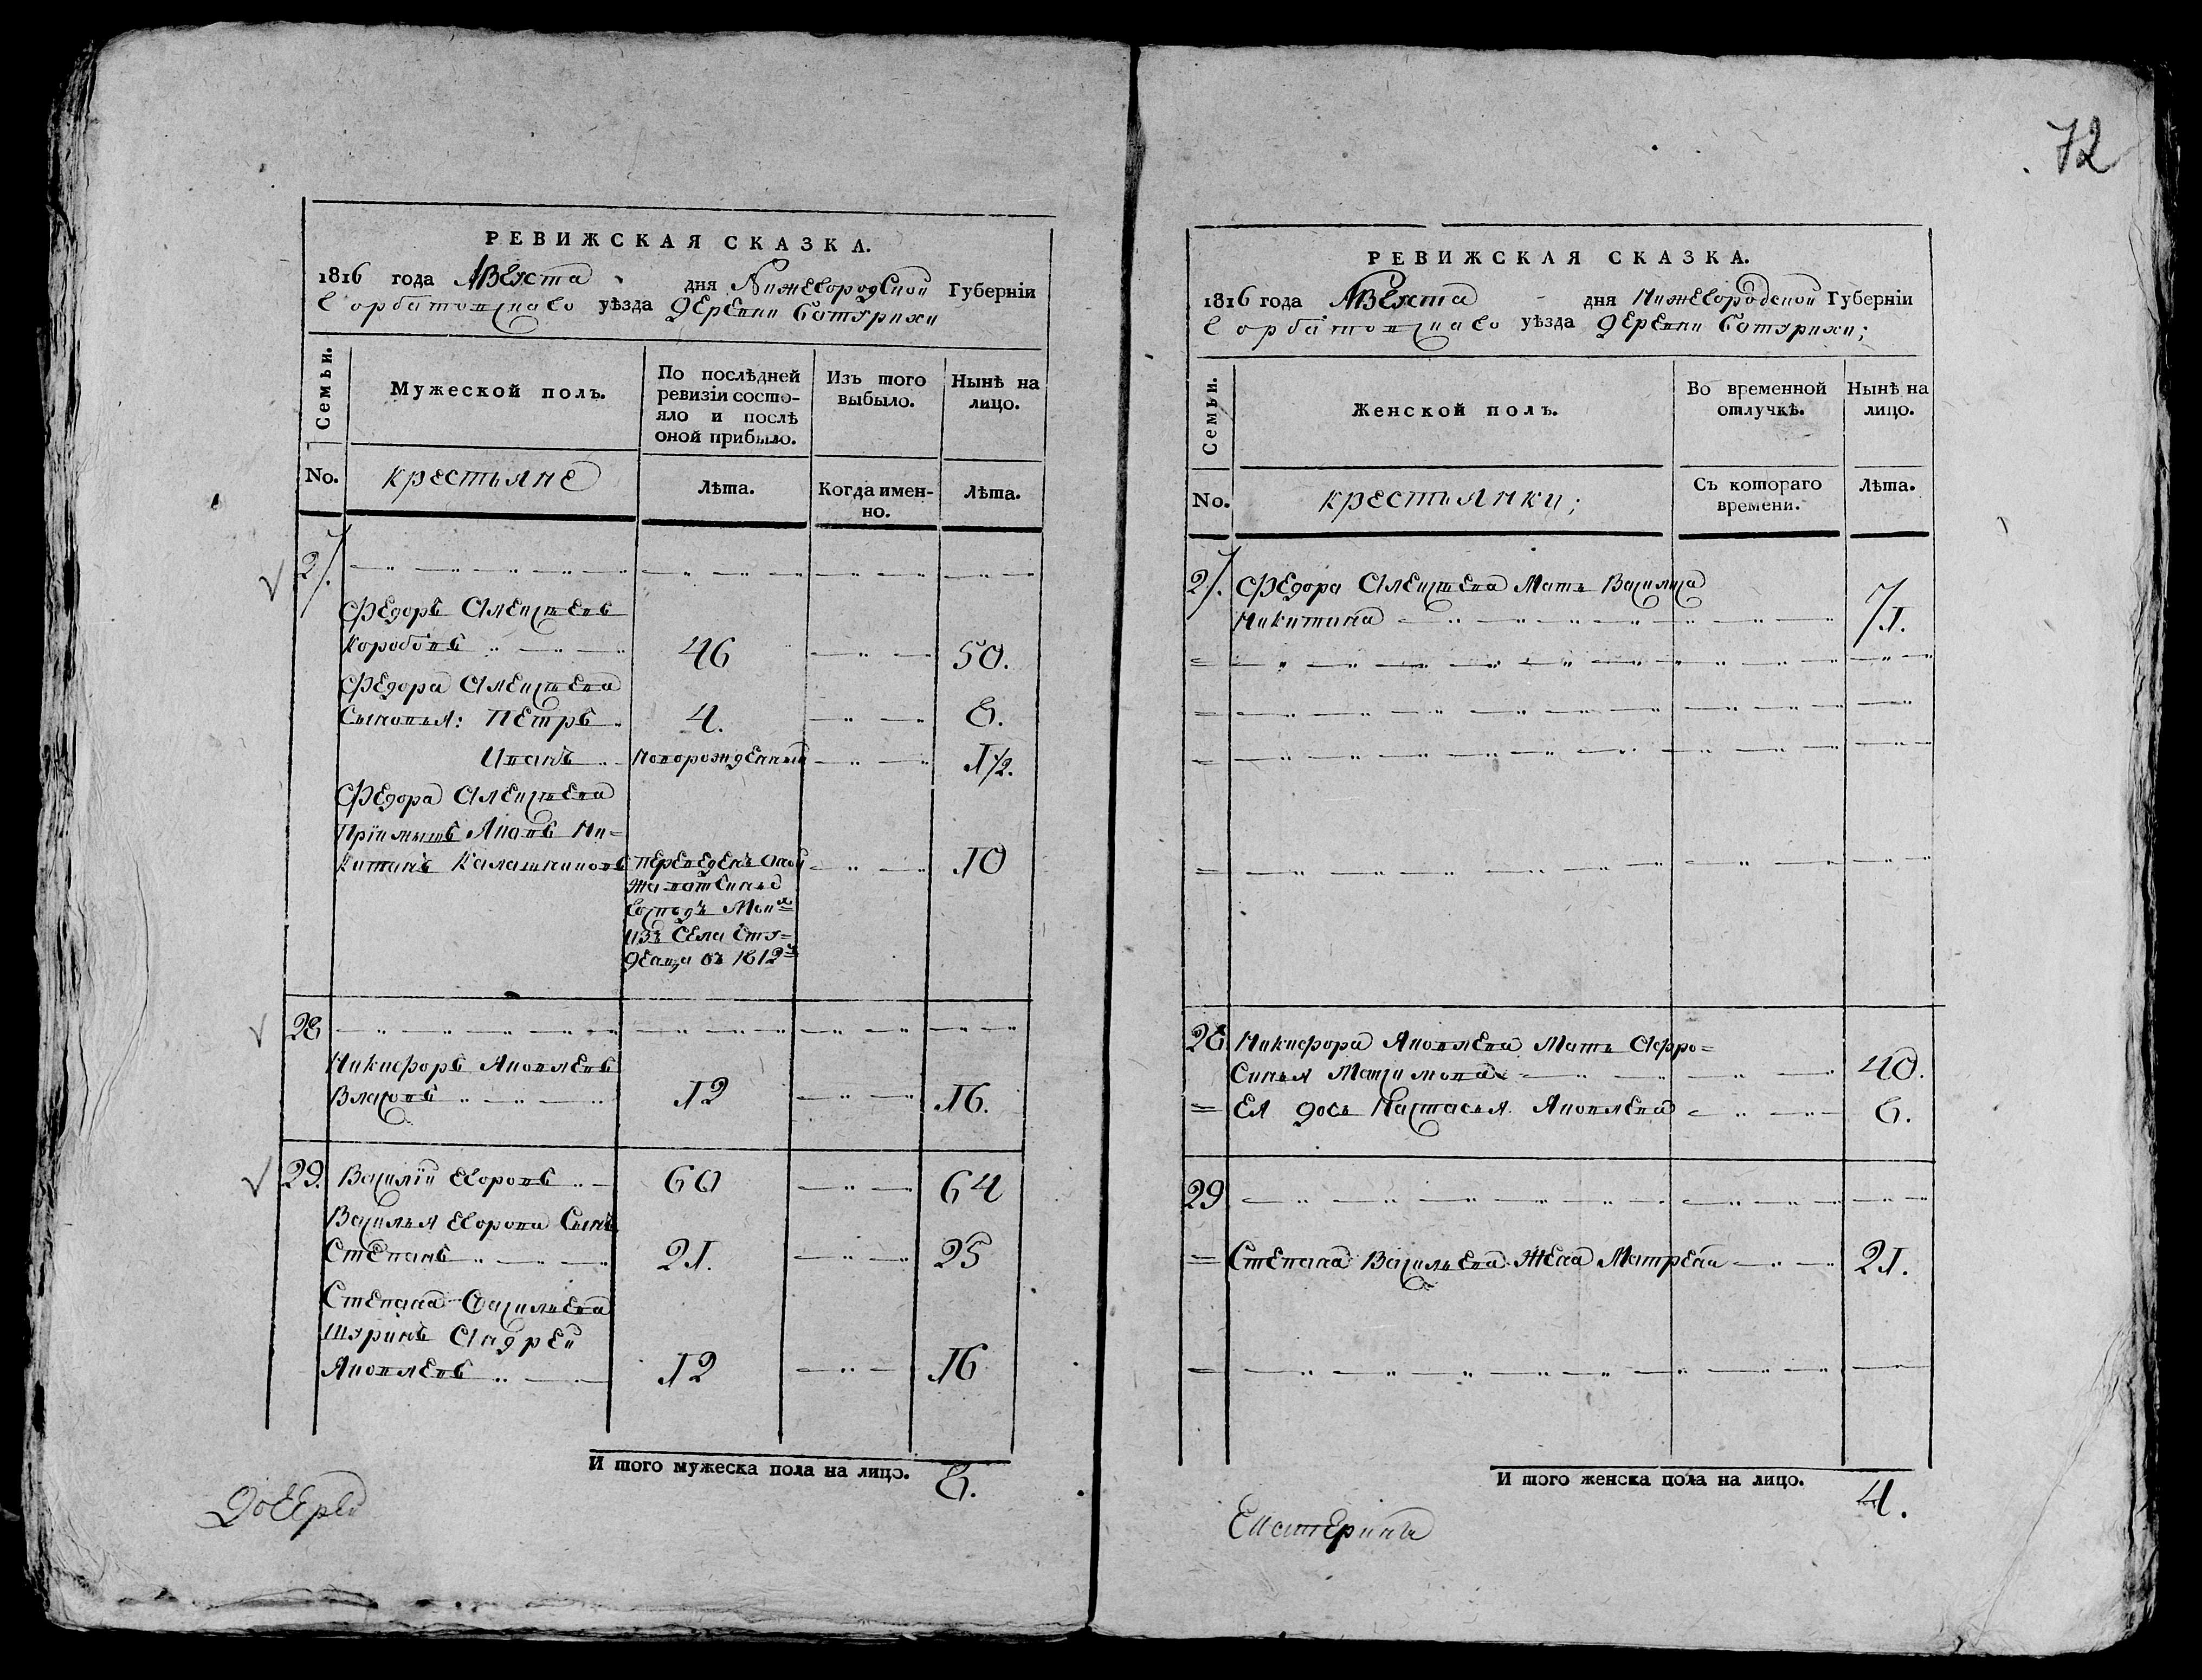 72
РЕВИЖСКАЯ СКАЗКА.
1816 года Августа дня Нижегородской Губерніи
Горбатовскаго уѣзда деревни Батурихи
Семьи.
Мужеской полъ.
По послѣдней ревизіи состояло и послѣ оной прибыло.
Изъ того выбыло.
Нынѣ на лицо.
No.
крестьяне
Лѣта.
Когда именно.
Лѣта.
27.
Федоръ Алексѣевъ
Коробовъ 46 50.
Федора Алексѣева
Сыновья: Петръ 4. 8.
Иванъ новорожденный 1½.
Федора Алексѣева
Пріимышъ Яковъ Ни=
китинъ Калашниковъ переведенъ 10
господъ
изъ села
1812
28
Никифоръ Яковлевъ
Власовъ 12 16.
29. Василій Егоровъ 60 64
Василья Егорова Сынъ
Степанъ 21. 25
Степана Васильева
Шуринъ Андрей
Яковлевъ 12 16
И того мужеска пола на лицо. 8.
РЕВИЖСКАЯ СКАЗКА.
1816 года Августа дня Нижегородской Губерніи
Горбатовскаго уѣзда деревни Батурихи;
Семьи.
Женской полъ.
Во временной отлучкѣ.
Нынѣ на лицо.
No.
крестьянки;
Съ котораго времени.
Лѣта.
27. Федора Алексѣева Мать Василиса
Никитина 71.
28. Никифора Яковлева Мать Афро=
синья 40.
= Ея дочь Настасья Яковлева 8.
29
= Степана Васильева Жена Матрена 21.
И того женска пола на лицо. 4.
Екатерина